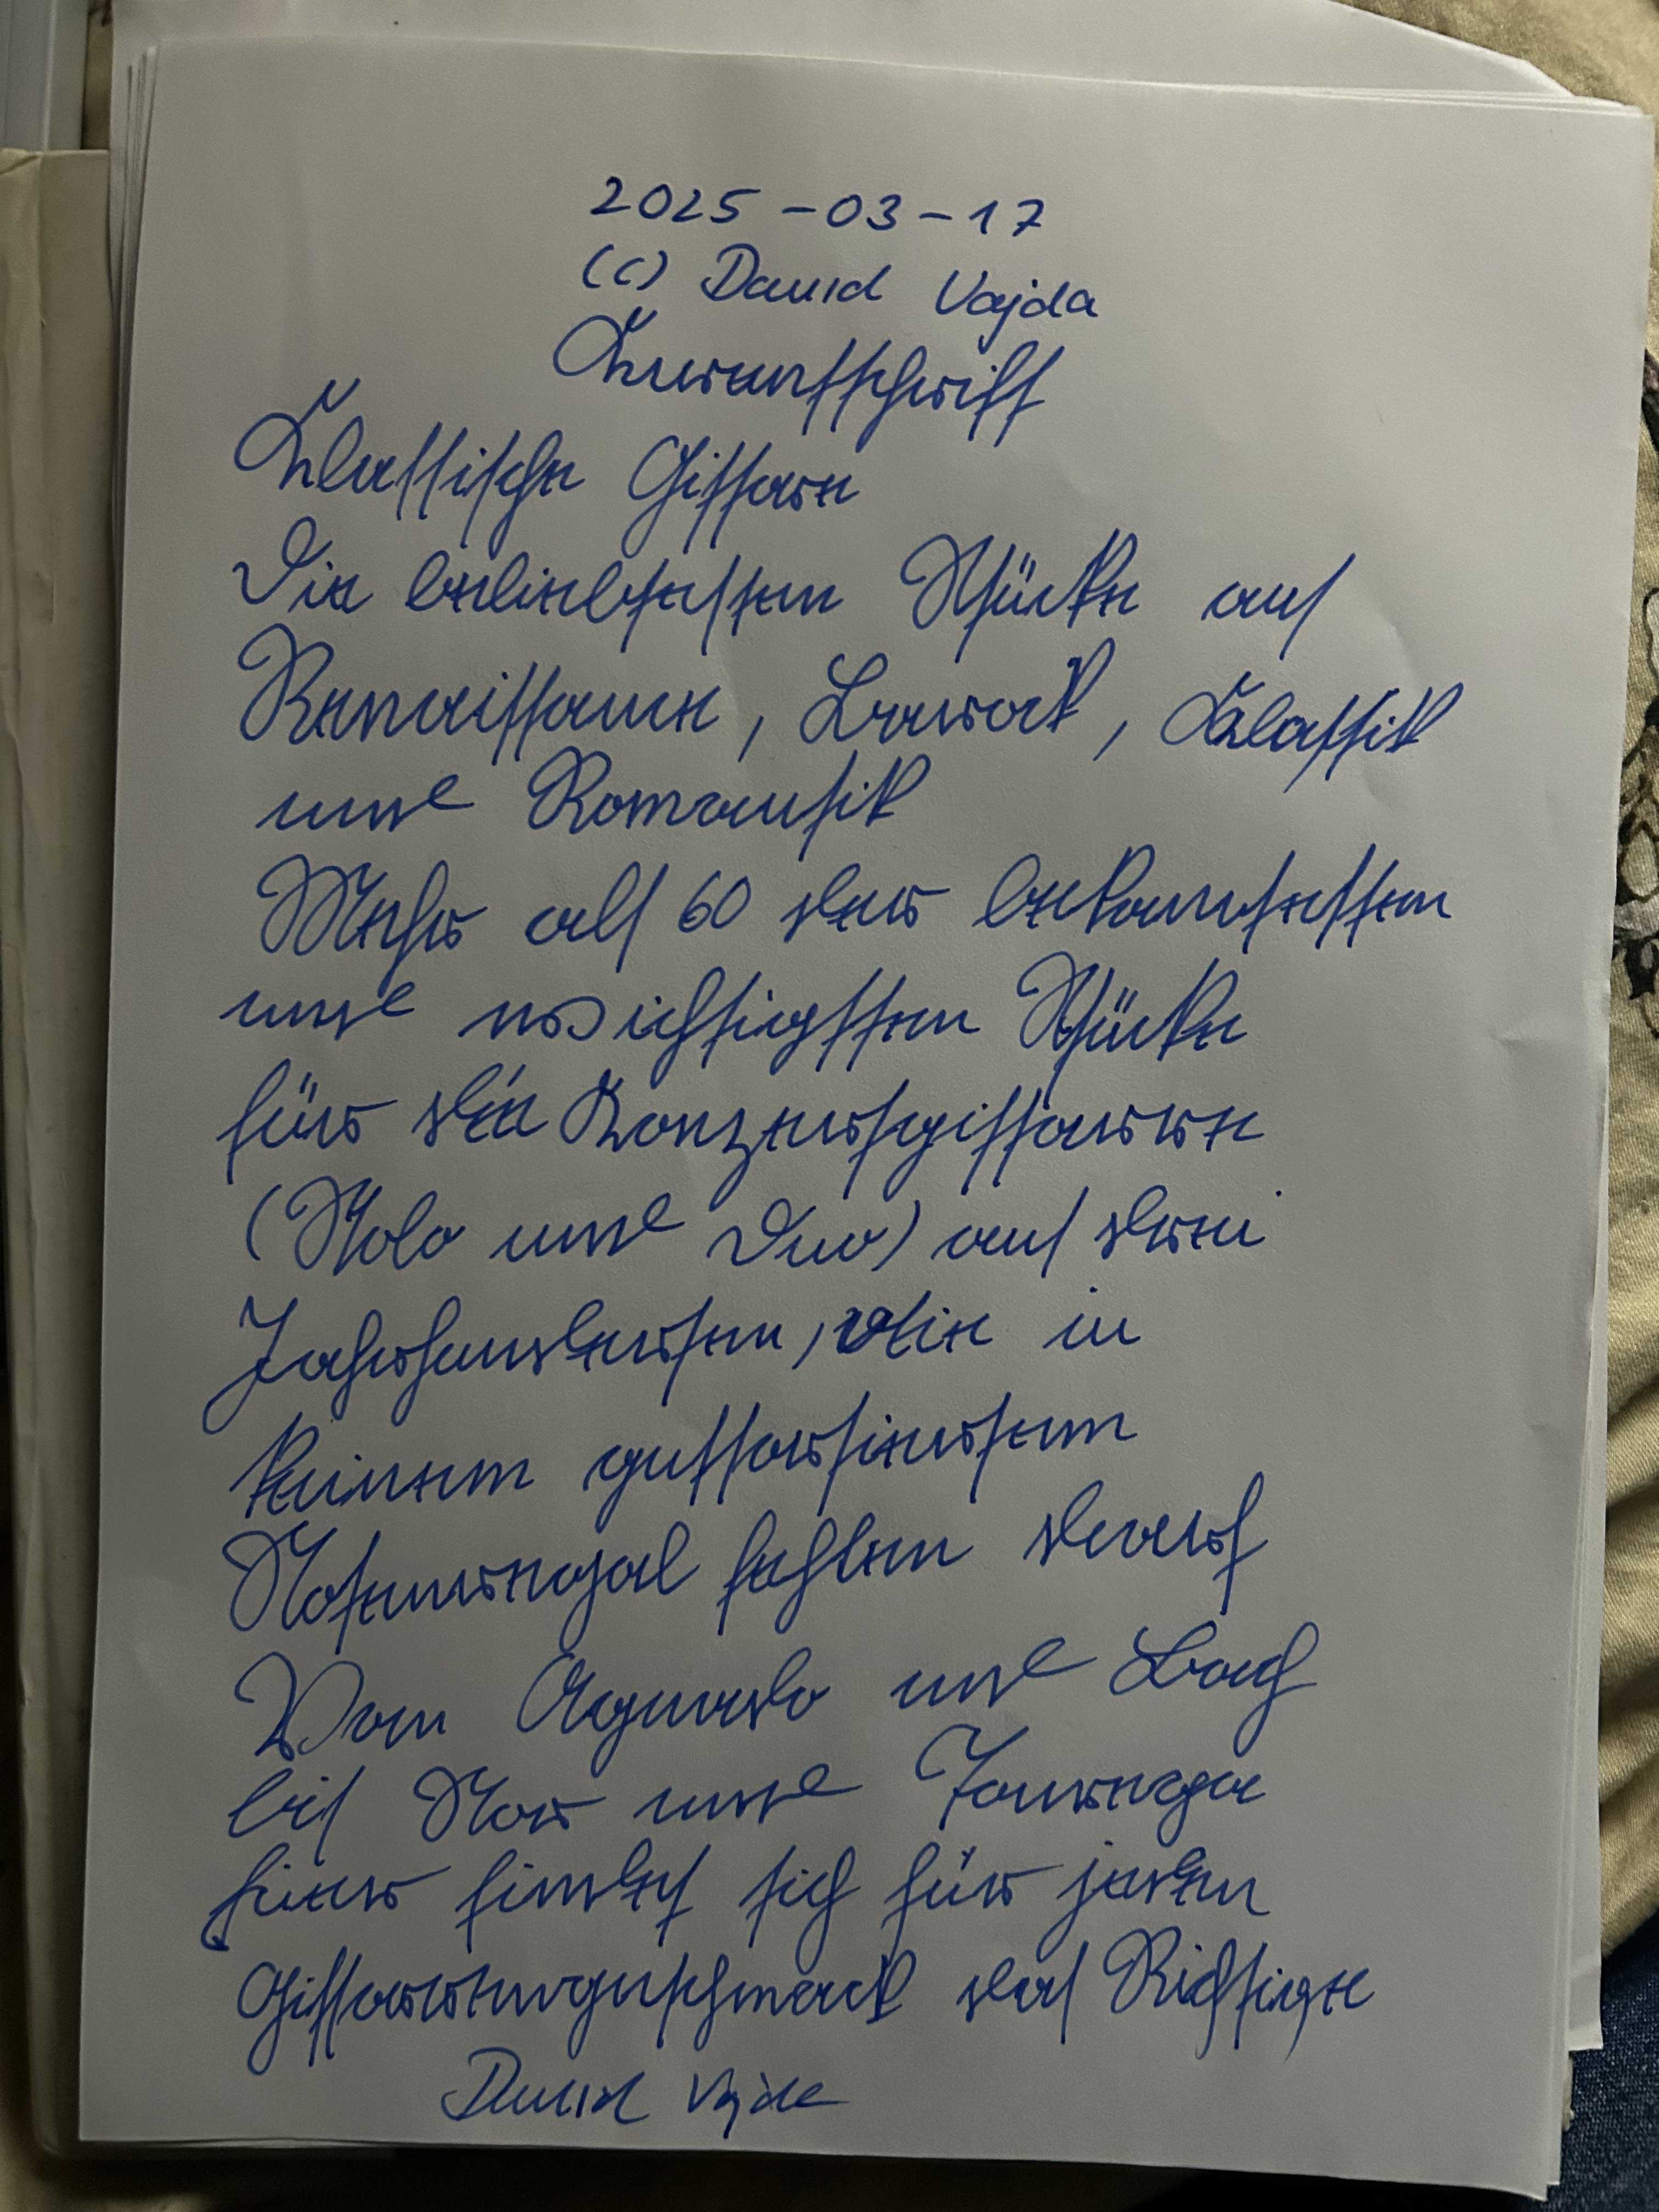 2025-03-17
(C) David Vajda
Kurrentschrift
Klassische Gitarre
Die beliebtesten Stücke aus
Renaissance, Barock, Klassik
und Romantik
Mehr als 60 der bekanntesten
und wichtigsten Stücke
für die Konzertgitarre
(Solo und Duo) aus drei
Jahrhunderten, die in
keinem gutsortierten
Notenregal fehlen darf
Von Aguado und Bach
bis Sor und Tarrega
hier findet sich für jeden
Gitarrengeschmack das Richtige
David Vajda